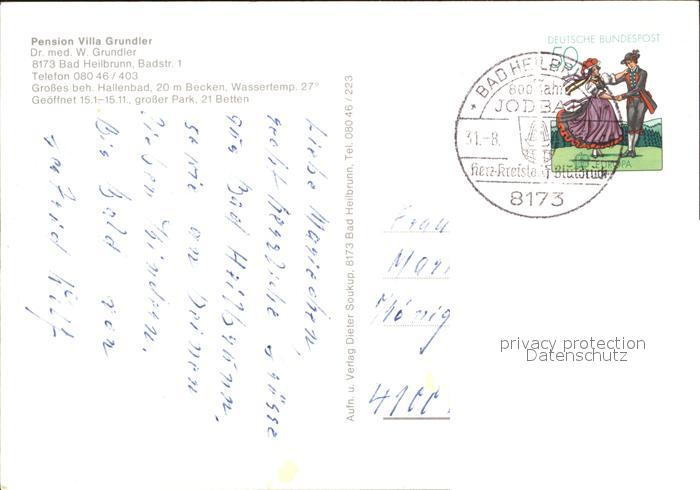 Pension Villa Grundler
Dr. med. W. Grundler
8173 Bad Heilbrunn, Badstr. 1
Telefon 080 46 / 403
Großes beh. Hallenbad, 20 m Becken, Wassertemp. 27°
Geöffnet 15.1–15.11., großer Park, 21 Betten
Liebe Mariechen,
recht herzliche Grüsse
aus Bad Heilbrunn,
Bis Bald von
Aufn. u. Verlag Dieter Soukup, 8173 Bad Heilbrunn, Tel. 080 46 / 223
DEUTSCHE BUNDESPOST
50
EUROPA
BAD HEILBR
800 Jahr
JODBA
31.-8.
Herz-Kreisla
Blutdruck
8173
Frau
Mari
König
4100
privacy protection
Datenschutz